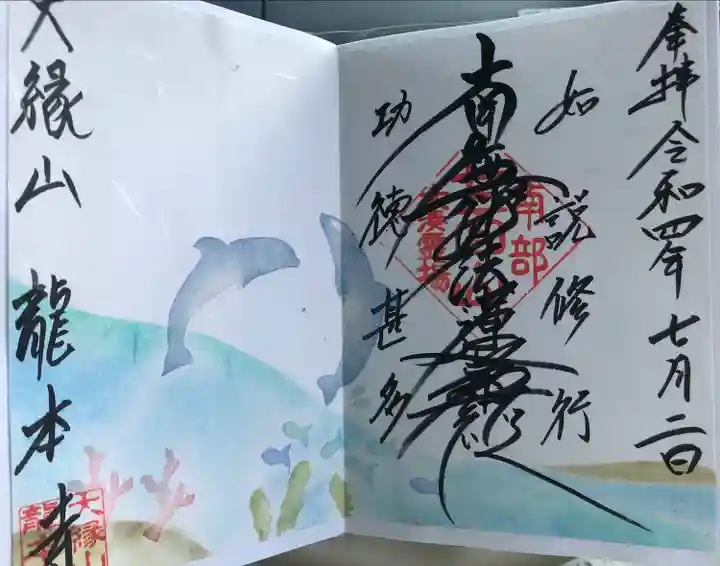 奉拝 令和四年 七月二日
如説修行
南無妙法蓮華経
功徳甚多
大縁山 龍本寺
大縁山